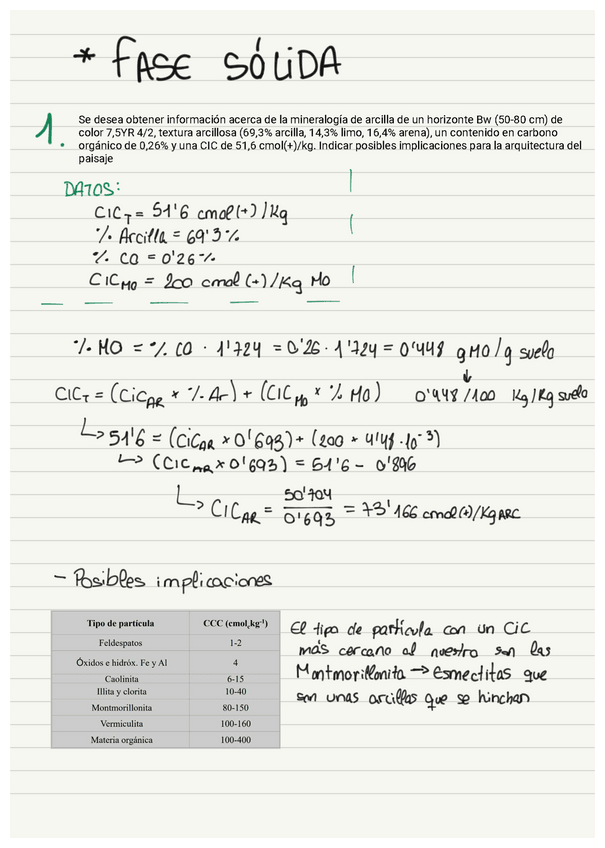 * FASE SÓLIDA
1. Se desea obtener información acerca de la mineralogía de arcilla de un horizonte Bw (50-80 cm) de
color 7,5YR 4/2, textura arcillosa (69,3% arcilla, 14,3% limo, 16,4% arena), un contenido en carbono
orgánico de 0,26% y una CIC de 51,6 cmol(+)/kg. Indicar posibles implicaciones para la arquitectura del
paisaje
DATOS:
CIC_T = 51'6 cmol(+)/Kg
% Arcilla = 69'3%
% CO = 0'26%
CIC_MO = 200 cmol(+)/Kg MO
% MO = % CO · 1'724 = 0'26 · 1'724 = 0'448 g MO/g suelo
↓
CIC_T = (CIC_AR × % Ar) + (CIC_MO × % MO) 0'448/100 Kg/Kg suelo
↳ 51'6 = (CIC_AR × 0'693) + (200 × 4'48·10⁻³)
↳ (CIC_AR × 0'693) = 51'6 - 0'896
↳ CIC_AR = 50'704 / 0'693 = 73'166 cmol(+)/Kg ARC
- Posibles implicaciones
Tipo de partícula CCC (cmol_c kg⁻¹)
Feldespatos 1-2
Óxidos e hidróx. Fe y Al 4
Caolinita 6-15
Illita y clorita 10-40
Montmorillonita 80-150
Vermiculita 100-160
Materia orgánica 100-400
El tipo de partícula con un CIC
más cercano al nuestro son las
Montmorillonita → Esmectitas que
son unas arcillas que se hinchan